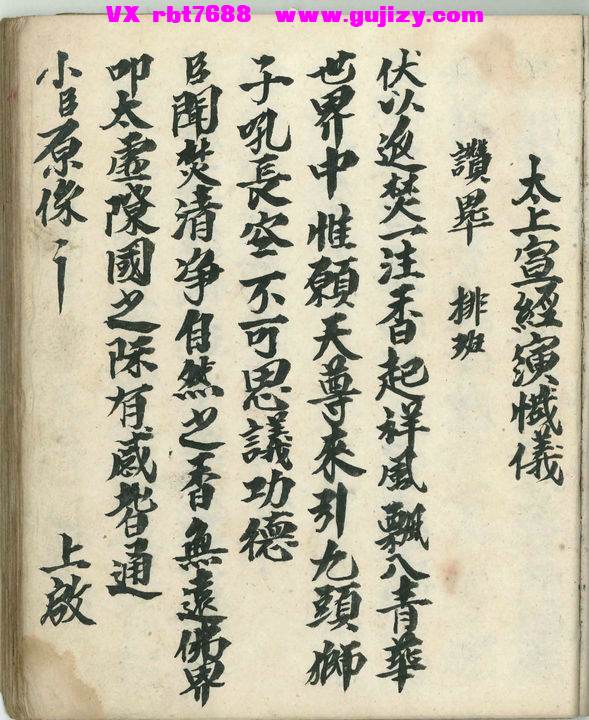 VX rbt7688 www.gujizy.com
太上宣經演懺儀
讚畢 排班
伏以返焚一注香起祥風飄八青華
世界中惟願天尊來引九頭獅
子吼長空不可思議功德
臣聞焚清净自然之香無遠佛界
叩太虛隙國之际有感皆通
小臣原係 上啟